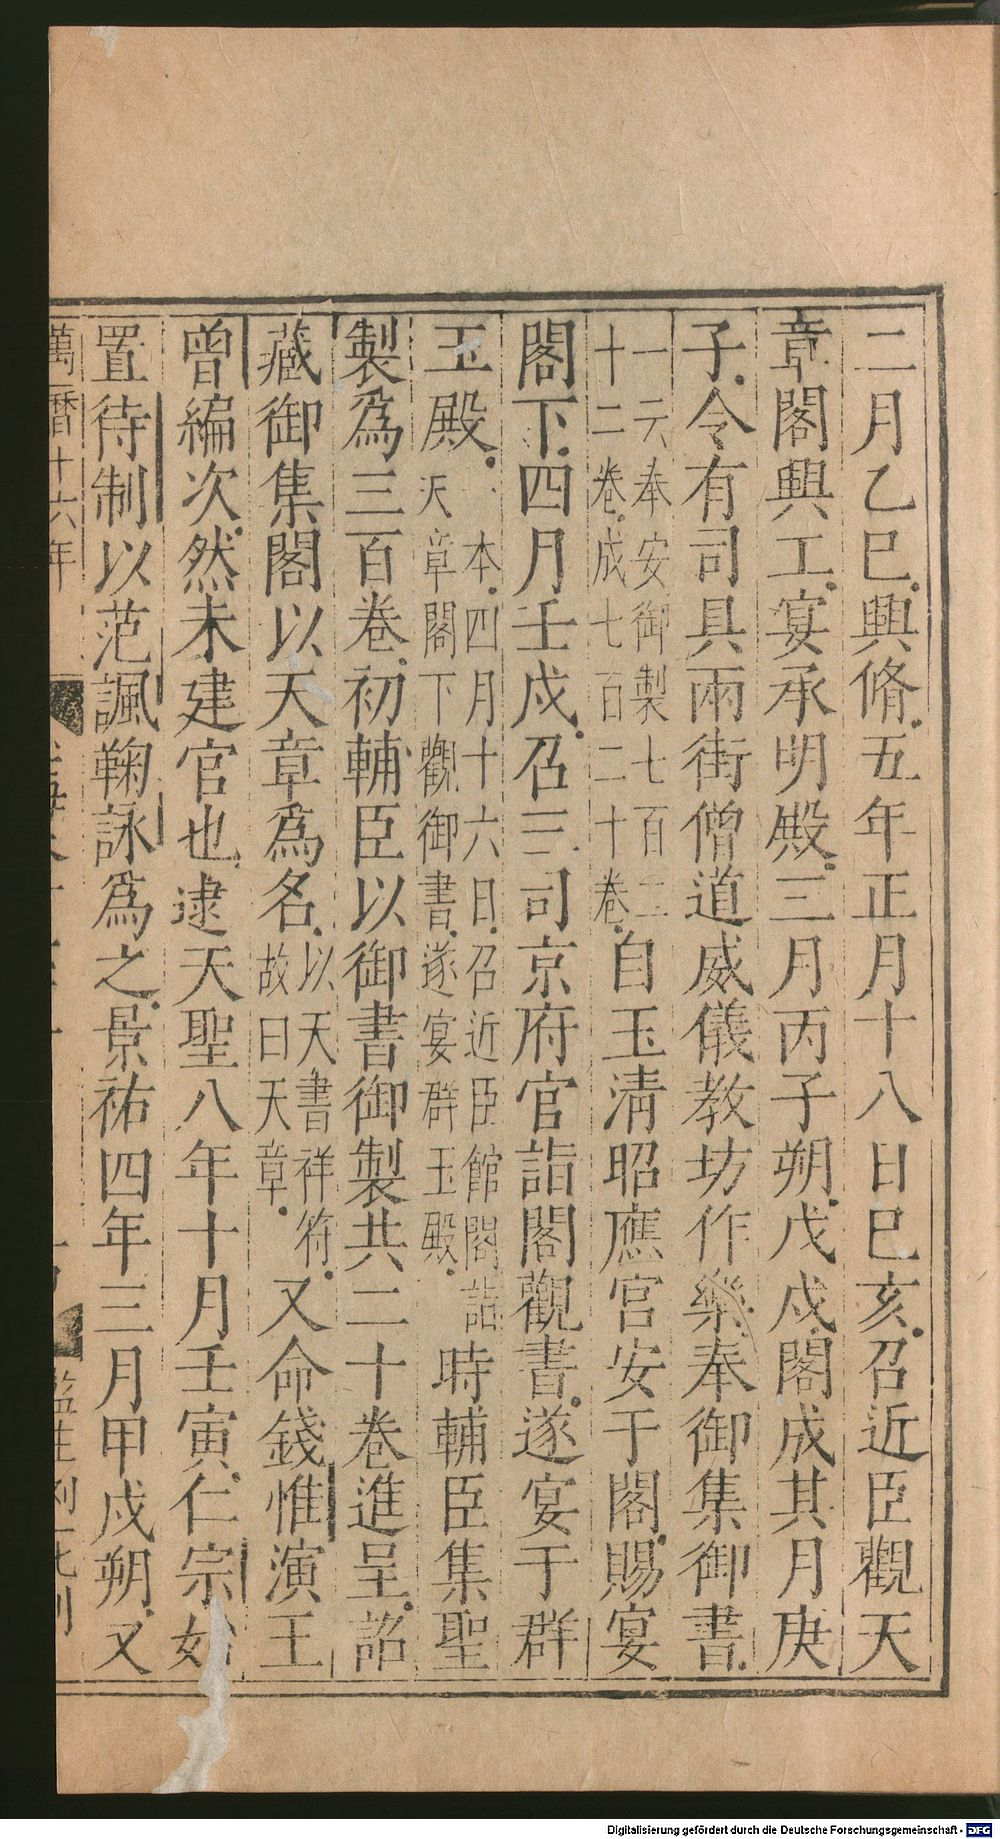 二月乙巳興脩五年正月十八日己亥召近臣觀天
章閣興工宴承明殿三月丙子朔戊戌閣成其月庚
子令有司具兩街僧道威儀教坊作樂奉御集御書
一云奉安御製七百二
十二卷成七百二十卷
自玉清昭應宮安于閣賜宴
閣下四月壬戌召三司京府官詣閣觀書遂宴于群
玉殿
本四月十六日召近臣館閣詣
天章閣下觀御書遂宴群玉殿
時輔臣集聖
製爲三百卷初輔臣以御書御製共二十卷進呈詔
藏御集閣以天章爲名
以天書祥符
故曰天章
又命錢惟演王
曾編次然未建官也逮天聖八年十月壬寅仁宗始
置待制以范諷鞠詠爲之景祐四年三月甲戌朔又
萬曆十六年
Digitalisierung gefördert durch die Deutsche Forschungsgemeinschaft - DFG